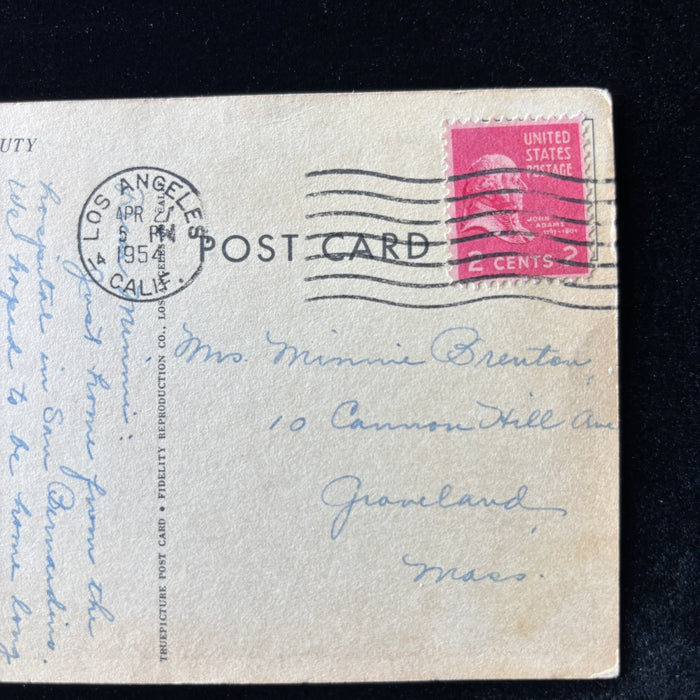 UTY
LOS ANGELES
APR 2
PM
1954
4
CALIF.
POST CARD
UNITED
STATES
POSTAGE
JOHN
ADAMS
1797-1801
2 CENTS 2
Mrs. Minnie Brenton,
10 Cannon Hill Ave
Groveland,
Mass.
TRUEPICTURE POST CARD • FIDELITY REPRODUCTION CO., LOS ANGELES CAL
Minnie:
Just home from the
hospital in San Bernardino.
We hoped to be home long